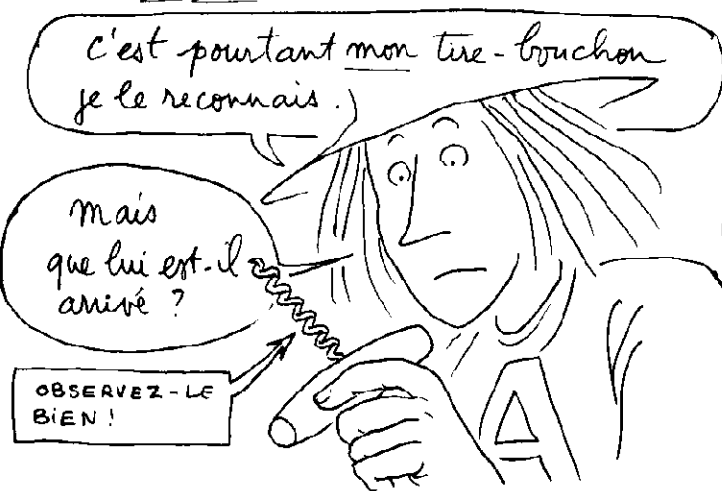 c'est pourtant mon tire-bouchon
je le reconnais.
Mais
que lui est-il
arrivé ?
OBSERVEZ-LE
BIEN !
A